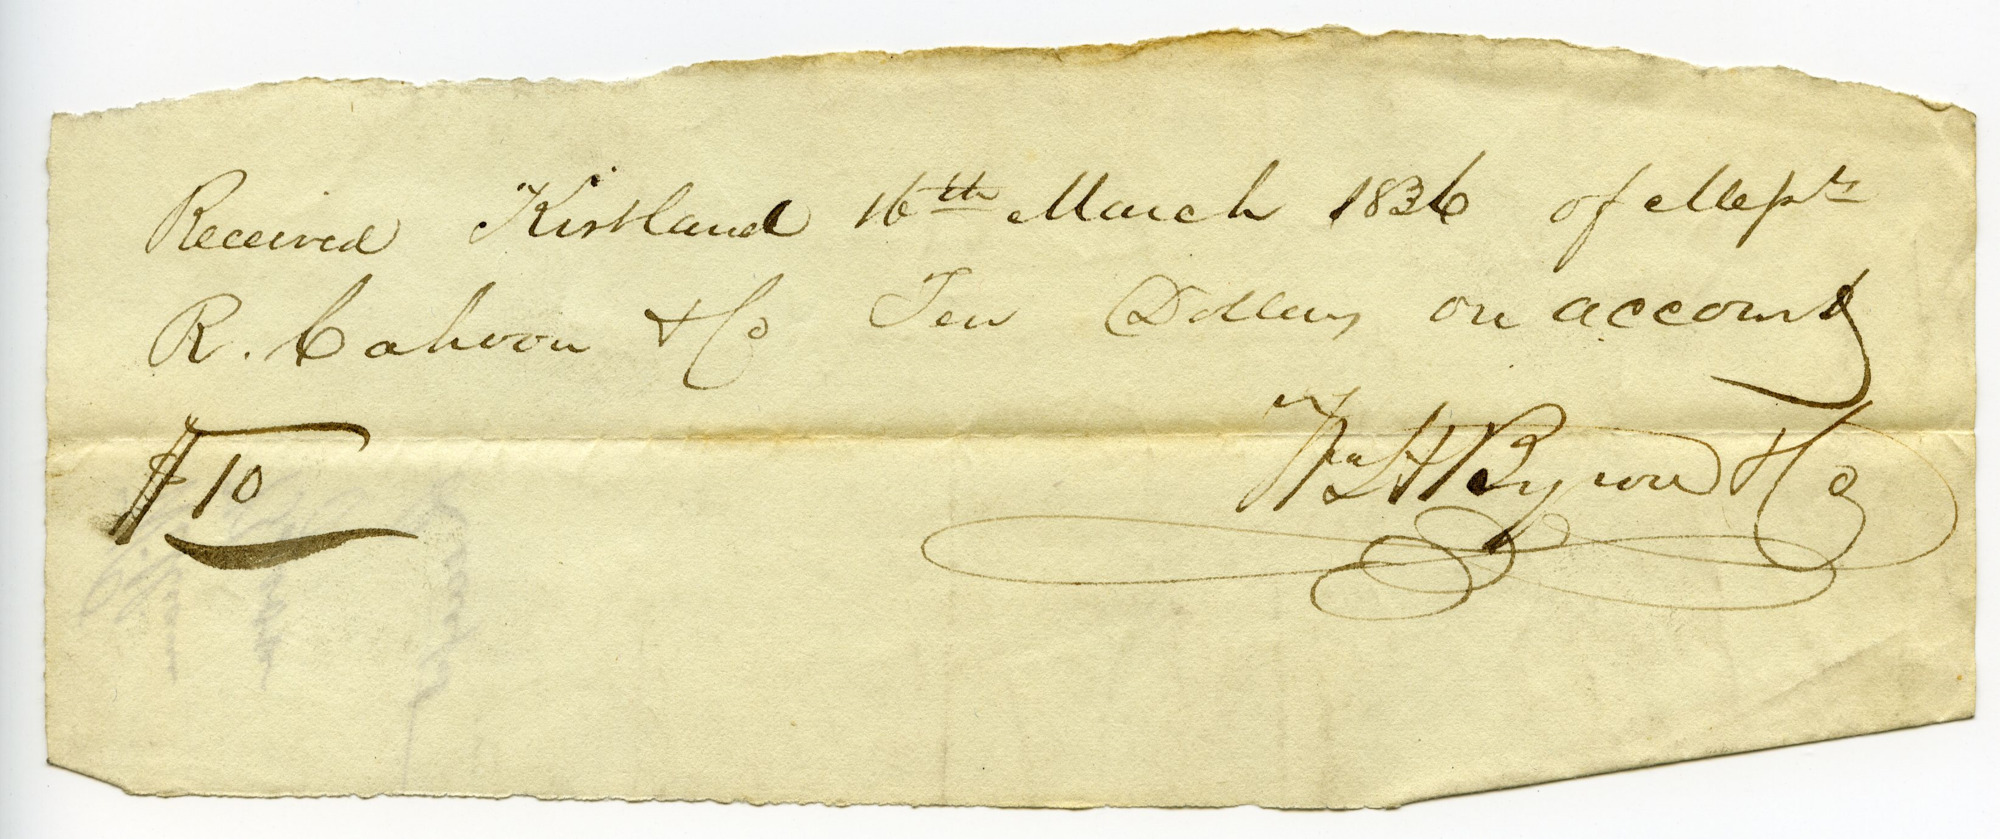 Received Kirtland 16th March 1836 of Messrs
R. Cahoon & Co Ten Dollars on account
$10 Wm H Byron & Co